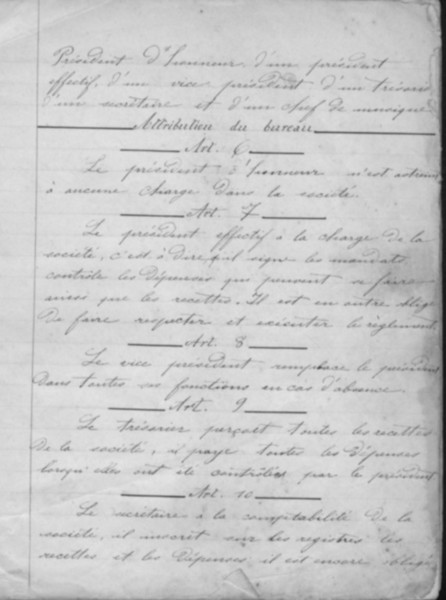 Président d'honneur d'un président
effectif, d'un vice président d'un trésorier
d'un secrétaire et d'un chef de musique
Attribution du bureau
Art. 6
Le président d'honneur n'est astreint
à aucune charge dans la société
Art. 7
Le président effectif à la charge de la
société, c'est à dire qu'il signe les mandats
contrôle les dépenses qui peuvent se faire
ainsi que les recettes. Il est en outre obligé
de faire respecter et exécuter le règlement
Art. 8
Le vice président remplace le président
dans toutes ses fonctions en cas d'absence.
Art. 9
Le trésorier perçoit toutes les recettes
de la société, il paye toutes les dépenses
lorsqu'elles ont été contrôlées par le président
Art. 10
Le secrétaire à la comptabilité de la
société, il inscrit sur les registres les
recettes et les dépenses il est encore obligé